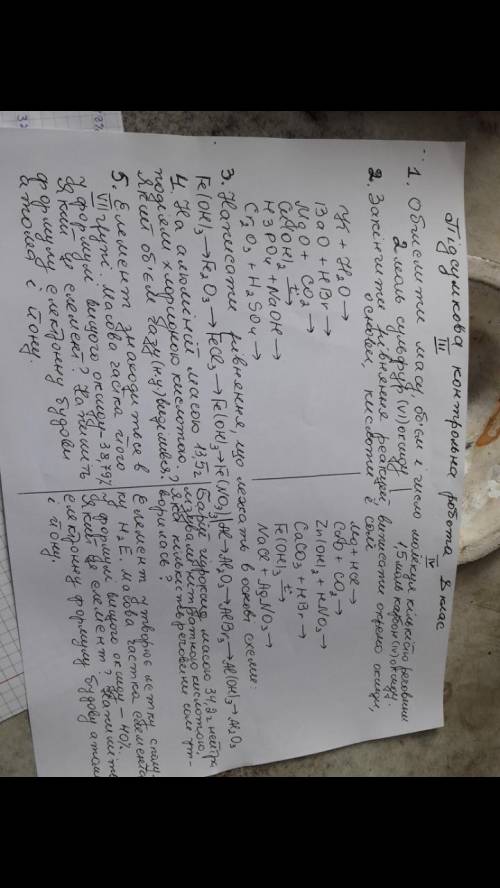 Підсумкова контрольна робота 8 клас
III
IV
1. Обчислити масу, об'єм і число молекул кількістю речовини
2 моль сульфур (VI) оксиду | 1,5 моль карбон (IV) оксиду.
2. Закінчити рівняння реакцій, виписати окремо оксиди,
основи, кислоти і солі
K + H2O →
BaO + HBr →
MgO + CO2 →
Cu(OH)2 t→
H3PO4 + NaOH →
Cr2O3 + H2SO4 →
Mg + HCl →
CaO + CO2 →
Zn(OH)2 + HNO3 →
CaCO3 + HBr →
Fe(OH)3 t→
NaCl + AgNO3 →
3. Написати рівняння, що лежать в основі схеми:
Fe(OH)3 → Fe2O3 → FeCl3 → Fe(OH)3 → Fe(NO3)3 | Al → Al2O3 → AlBr3 → Al(OH)3 → Al2O3
4. На алюміній масою 13,5 г
подіяли хлоридною кислотою.
Який об'єм газу (н.у) виділився?
Барій гідроксид масою 34,2 г нейтра
лізували нітратною кислотою,
яка кількість речовини солі ут-
ворилась?
5. Елемент знаходиться в
VII групі. Масова частка його
у формулі вищого оксиду - 38,79%
Який це елемент? Напишіть
формулу електронну будови
атома і йону.
Елемент утворює летку спол-
ку H2E. Масова частка елемента
у формулі вищого оксиду - 40%.
Який це елемент? Напишіть
електронну формулу будову атома
і йону.